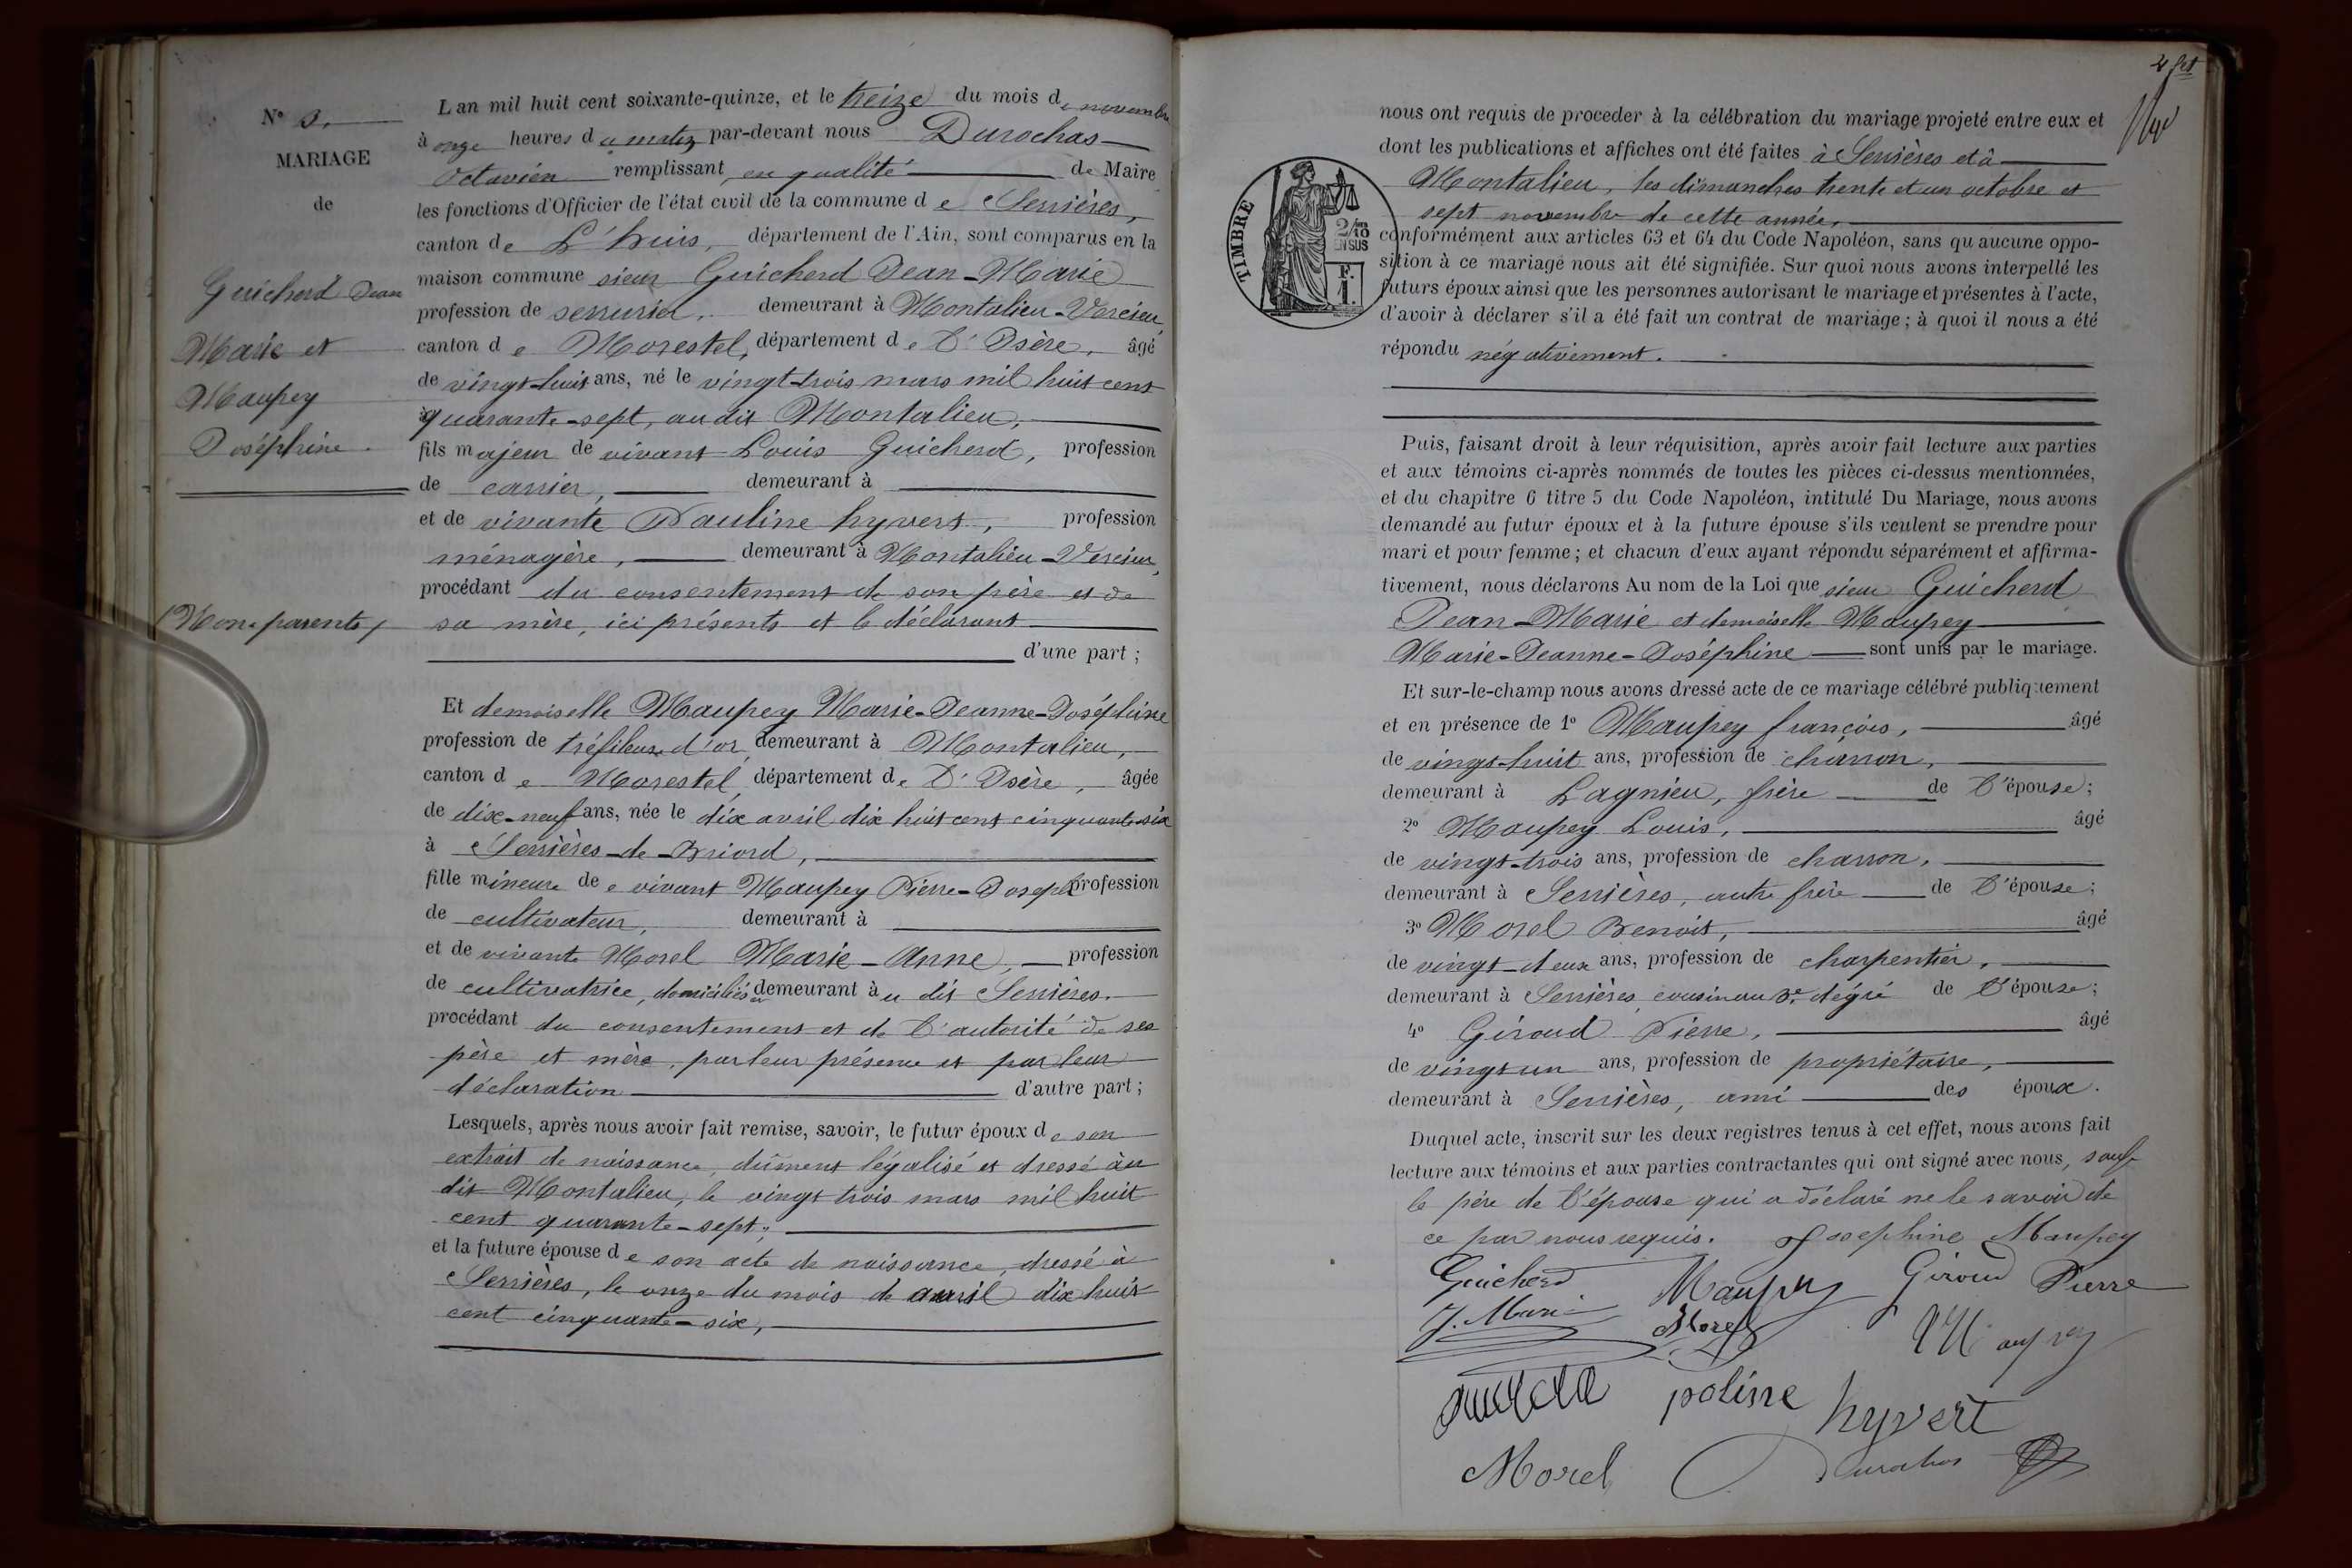 N° 3.
MARIAGE
de
Guicherd Jean
Marie et
Maupey
Joséphine.
/Non parents/
L'an mil huit cent soixante-quinze, et le treize du mois de novembre
à onze heures du matin par-devant nous Durochas
Octavien remplissant, en qualité de Maire
les fonctions d'Officier de l'état civil de la commune de Serrières,
canton de L'huis, département de l'Ain, sont comparus en la
maison commune sieur Guicherd Jean-Marie
profession de serrurier, demeurant à Montalieu-Vercieu,
canton de Morestel, département de L'Isère, âgé
de vingt-huit ans, né le vingt-trois mars mil huit cent
quarante-sept, au dit Montalieu,
fils majeur de vivant Louis Guicherd, profession
de carrier, demeurant à
et de vivante Pauline hyvert, profession
ménagère, demeurant à Montalieu-Vercieu,
procédant du consentement de son père et de
sa mère, ici présents et le déclarant
d'une part ;
Et demoiselle Maupey Marie-Jeanne-Joséphine
profession de tréfileuse d'or, demeurant à Montalieu,
canton de Morestel, département de L'Isère, âgée
de dix-neuf ans, née le dix avril dix huit cent cinquante-six
à Serrières-de-Briord,
fille mineure de vivant Maupey Pierre-Joseph profession
de cultivateur, demeurant à
et de vivante Morel Marie-Anne, profession
de cultivatrice, domiciliés et demeurant au dit Serrières.
procédant du consentement et de l'autorité de ses
père et mère, par leur présence et par leur
déclaration d'autre part ;
Lesquels, après nous avoir fait remise, savoir, le futur époux de son
extrait de naissance, dûment légalisé et dressé au
dit Montalieu, le vingt trois mars mil huit
cent quarante-sept ;
et la future épouse de son acte de naissance, dressé à
Serrières, le onze du mois de avril dix huit
cent cinquante-six,
nous ont requis de proceder à la célébration du mariage projeté entre eux et
dont les publications et affiches ont été faites à Serrières et à
Montalieu, les dimanches trente et un octobre et
sept novembre de cette année,
TIMBRE
2/10
EN SUS
F.
1.
conformément aux articles 63 et 64 du Code Napoléon, sans qu'aucune oppo-
sition à ce mariage nous ait été signifiée. Sur quoi nous avons interpellé les
futurs époux ainsi que les personnes autorisant le mariage et présentes à l'acte,
d'avoir à déclarer s'il a été fait un contrat de mariage ; à quoi il nous a été
répondu négativement.
Puis, faisant droit à leur réquisition, après avoir fait lecture aux parties
et aux témoins ci-après nommés de toutes les pièces ci-dessus mentionnées,
et du chapitre 6 titre 5 du Code Napoléon, intitulé Du Mariage, nous avons
demandé au futur époux et à la future épouse s'ils veulent se prendre pour
mari et pour femme ; et chacun d'eux ayant répondu séparément et affirma-
tivement, nous déclarons Au nom de la Loi que sieur Guicherd
Jean-Marie et demoiselle Maupey
Marie-Jeanne-Joséphine sont unis par le mariage.
Et sur-le-champ nous avons dressé acte de ce mariage célébré publiquement
et en présence de 1° Maupey françois, âgé
de vingt-huit ans, profession de charron,
demeurant à Lagnieu, frère de L'épouse ;
2° Maupey Louis, âgé
de vingt-trois ans, profession de charron,
demeurant à Serrières, autre frère de L'épouse ;
3° Morel Benoit, âgé
de vingt-deux ans, profession de charpentier,
demeurant à Serrières, cousin au 3e dégré de L'épouse ;
4° Giroud Pierre, âgé
de vingt un ans, profession de propriétaire,
demeurant à Serrières, ami des époux.
Duquel acte, inscrit sur les deux registres tenus à cet effet, nous avons fait
lecture aux témoins et aux parties contractantes qui ont signé avec nous, sauf
le père de L'épouse qui a déclaré ne le savoir de
ce par nous requis. Josephine Maupey
Guicherd Maupey Giroud Pierre
J. Marie Morel Maupey
poline hyvert
Morel Durochas